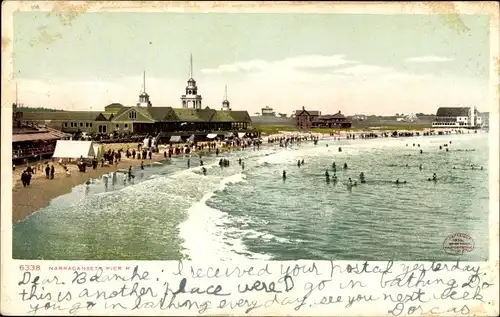 6338 NARRAGANSETT PIER R
Dear Blanche, I received your postal yesterday
this is another place were I go in bathing. Do
you go in bathing every day, see you next week
Dorcas